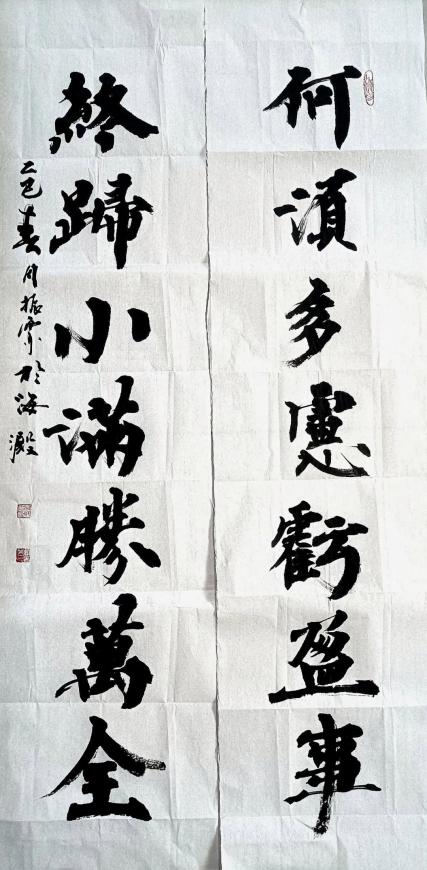 何須多慮虧盈事
終歸小滿勝萬全
乙巳春月振寧於海澱